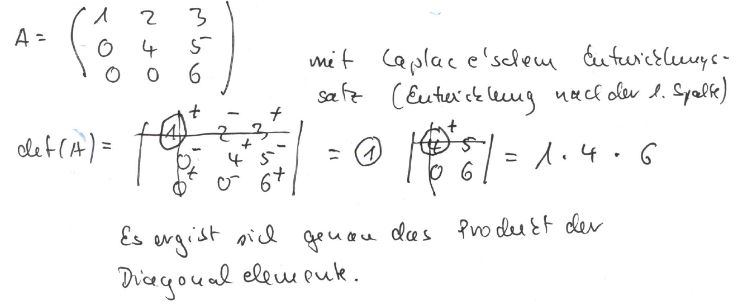 A = ( 1 2 3
0 4 5
0 0 6 )
mit Laplace'schem Entwicklungs-
satz (Entwicklung nach der 1. Spalte)
det(A) = | 1+ 2- 3+
0- 4+ 5-
0+ 0- 6+ | = 1 | 4+ 5
0 6 | = 1 · 4 · 6
Es ergibt sich genau das Produkt der
Diagonalelemente.